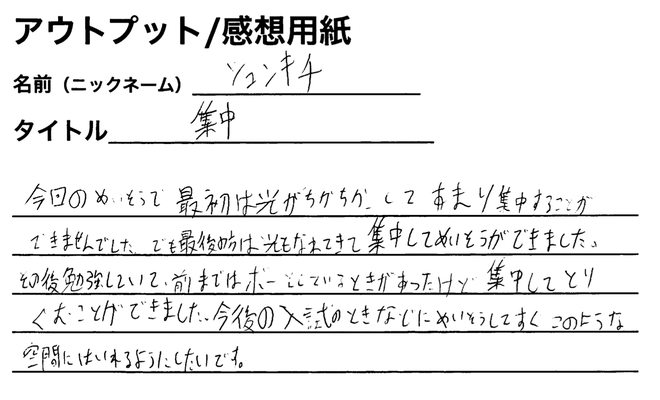 アウトプット/感想用紙
名前（ニックネーム） シュンキチ
タイトル 集中
今回のめいそうで最初は光がちかちかしてあまり集中することが
できませんでした。でも最後の方は光もなれてきて集中してめいそうができました。
その後勉強していて、前まではボーとしているときがあったけど集中してとり
くむことができました。今後の入試のときなどにめいそうしてすぐこのような
空間にはいれるようにしたいです。